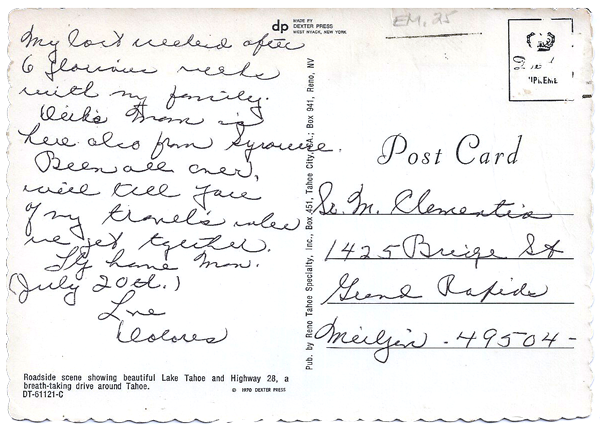 dp MADE BY
DEXTER PRESS
WEST NYACK, NEW YORK
EM. 25
My last weekend after
6 glorious weeks
with my family.
Dick's Mom is
here also from Syracuse.
Been all over,
will tell you
of my travels when
we get together.
Fly home Mon.
(July 20th.)
Love
Dolores
Post Card
Sr. M. Clementia
1425 Bridge St
Grand Rapids
Michigan - 49504 -
Pub. by Reno Tahoe Specialty, Inc., Box 451, Tahoe City, CA.; Box 941, Reno, NV
Roadside scene showing beautiful Lake Tahoe and Highway 28, a
breath-taking drive around Tahoe.
DT-61121-C
© 1970 DEXTER PRESS